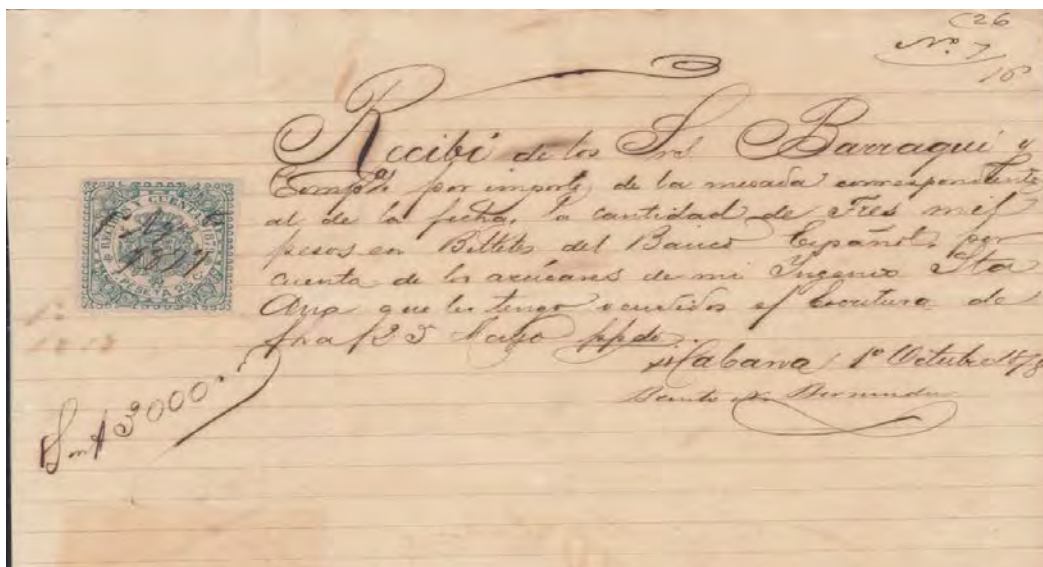 C26
No. 7
10
Recibí de los Srs Barraqui y
Compa. por importe de la mesada correspondiente
al de la fecha, la cantidad de Tres mil
pesos en Billetes del Banco Español, por
cuenta de los azúcares de mi Ingenio Sta
Ana que les tengo vendidos sf Escritura de
fha 25 Mayo ppdo.
Habana 1º Octubre 1878
Benito
Son $ 3000
RECIBOS Y CUENTAS